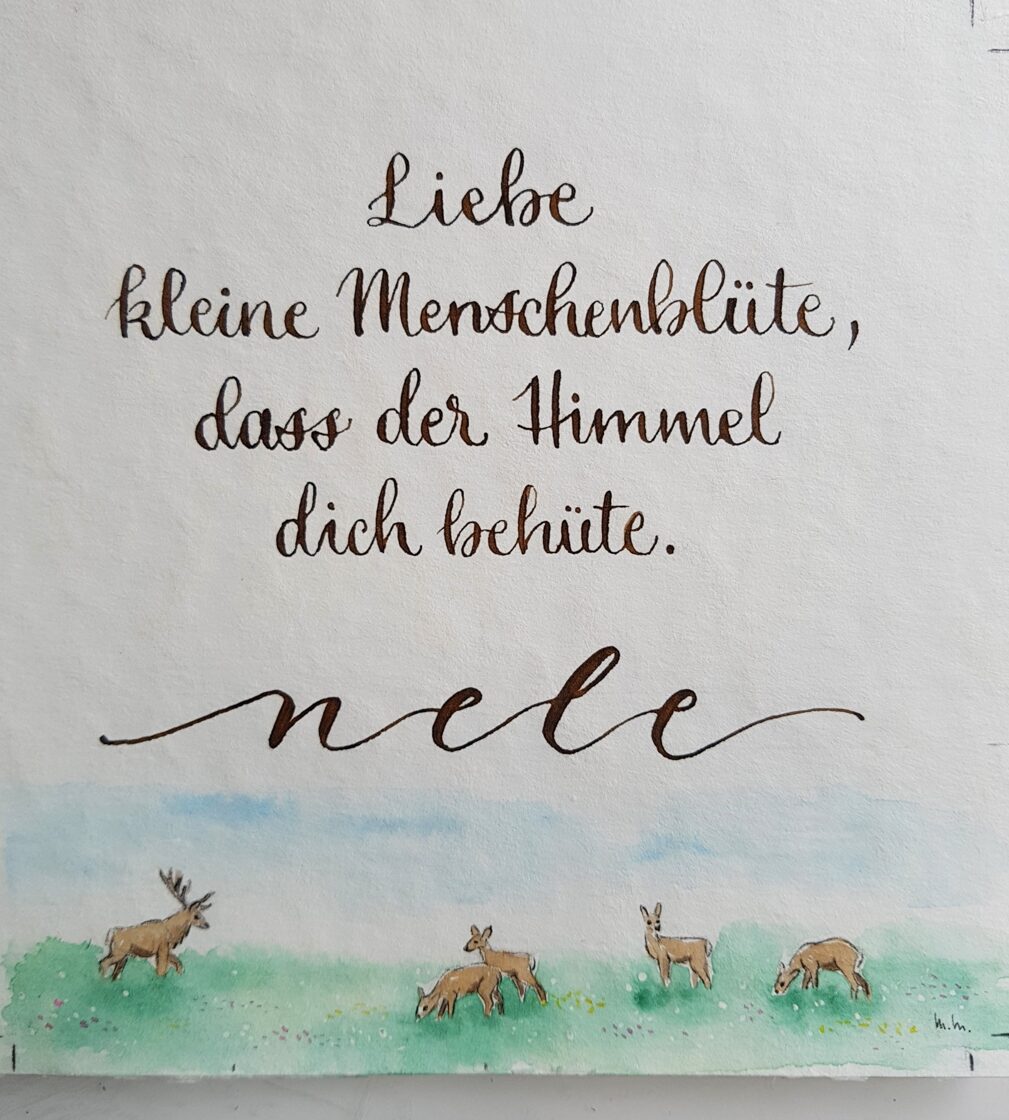 Liebe
kleine Menschenblüte,
dass der Himmel
dich behüte.
nele
m.m.